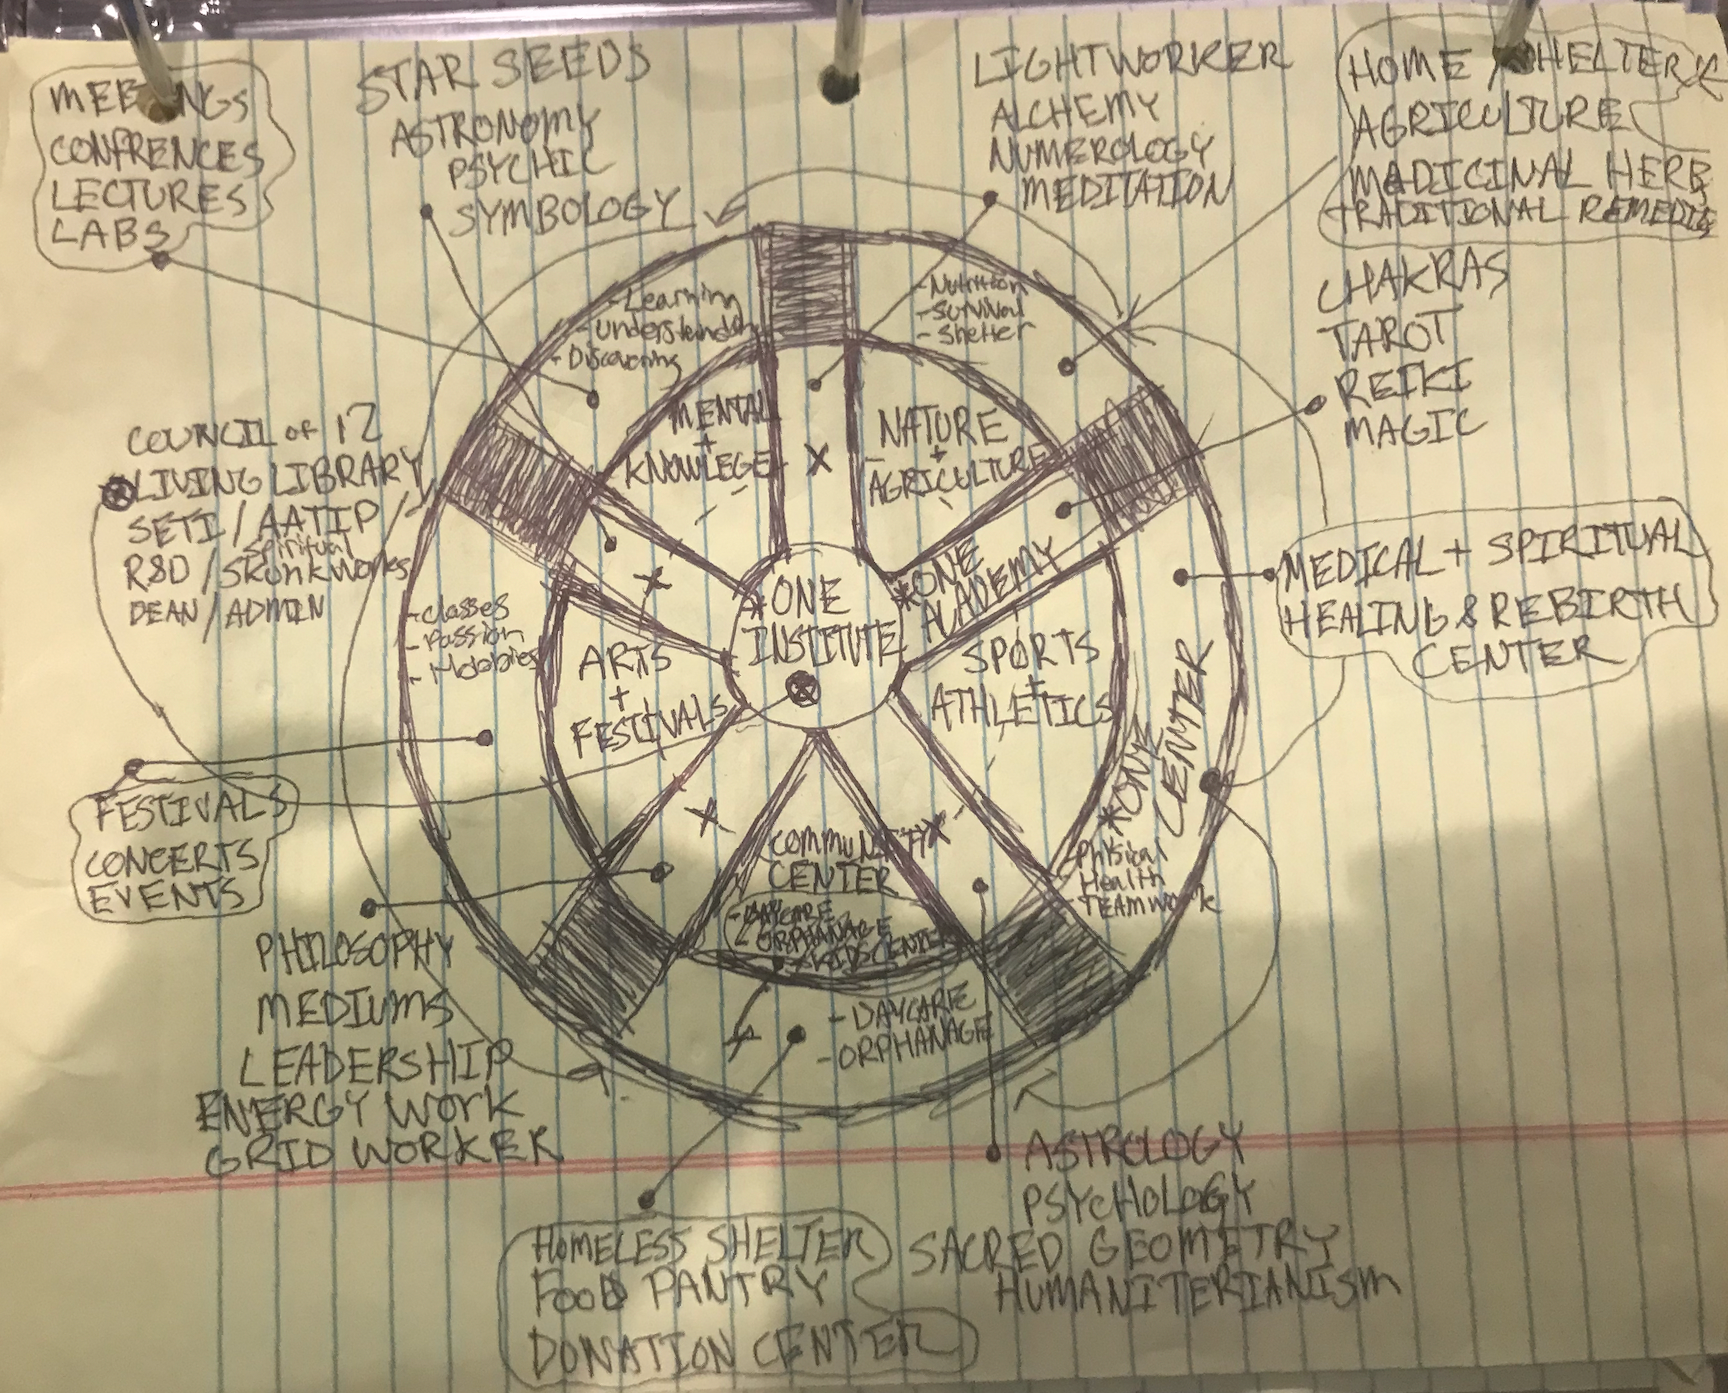 MEETINGS
CONFRENCES
LECTURES
LABS
STAR SEEDS
ASTRONOMY
PSYCHIC
SYMBOLOGY
LIGHTWORKER
ALCHEMY
NUMEROLOGY
MEDITATION
HOME / SHELTER
AGRICULTURE
MADICINAL HERB
TRADITIONAL REMEDIES
CHAKRAS
TAROT
REIKI
MAGIC
- Learning
- Understanding
- Discovering
- Nutrition
- Survival
- Shelter
MENTAL
+
KNOWLEGE
X
NATURE
+
AGRICULTURE
COUNCIL OF 12
LIVING LIBRARY
SETI / AATIP /
R&D / Spiritual SkunkWorks
DEAN / ADMIN
X
*ONE
INSTITUTE
*ONE
ACADEMY
MEDICAL + SPIRITUAL
HEALING & REBIRTH
CENTER
- classes
- Passion
- Hobbies
ARTS
+
FESTIVALS
SPORTS
+
ATHLETICS
*ONE
CENTER
- Physical
Health
- TEAMWORK
FESTIVALS
CONCERTS
EVENTS
X
X
COMMUNITY
CENTER
- DAYCARE
ORPHANAGE
KIDSCENTER
- DAYCARE
- ORPHANAGE
PHILOSOPHY
MEDIUMS
LEADERSHIP
ENERGY WORK
GRID WORKER
ASTROLOGY
PSYCHOLOGY
SACRED GEOMETRY
HUMANITERIANISM
HOMELESS SHELTER
FOOD PANTRY
DONATION CENTER